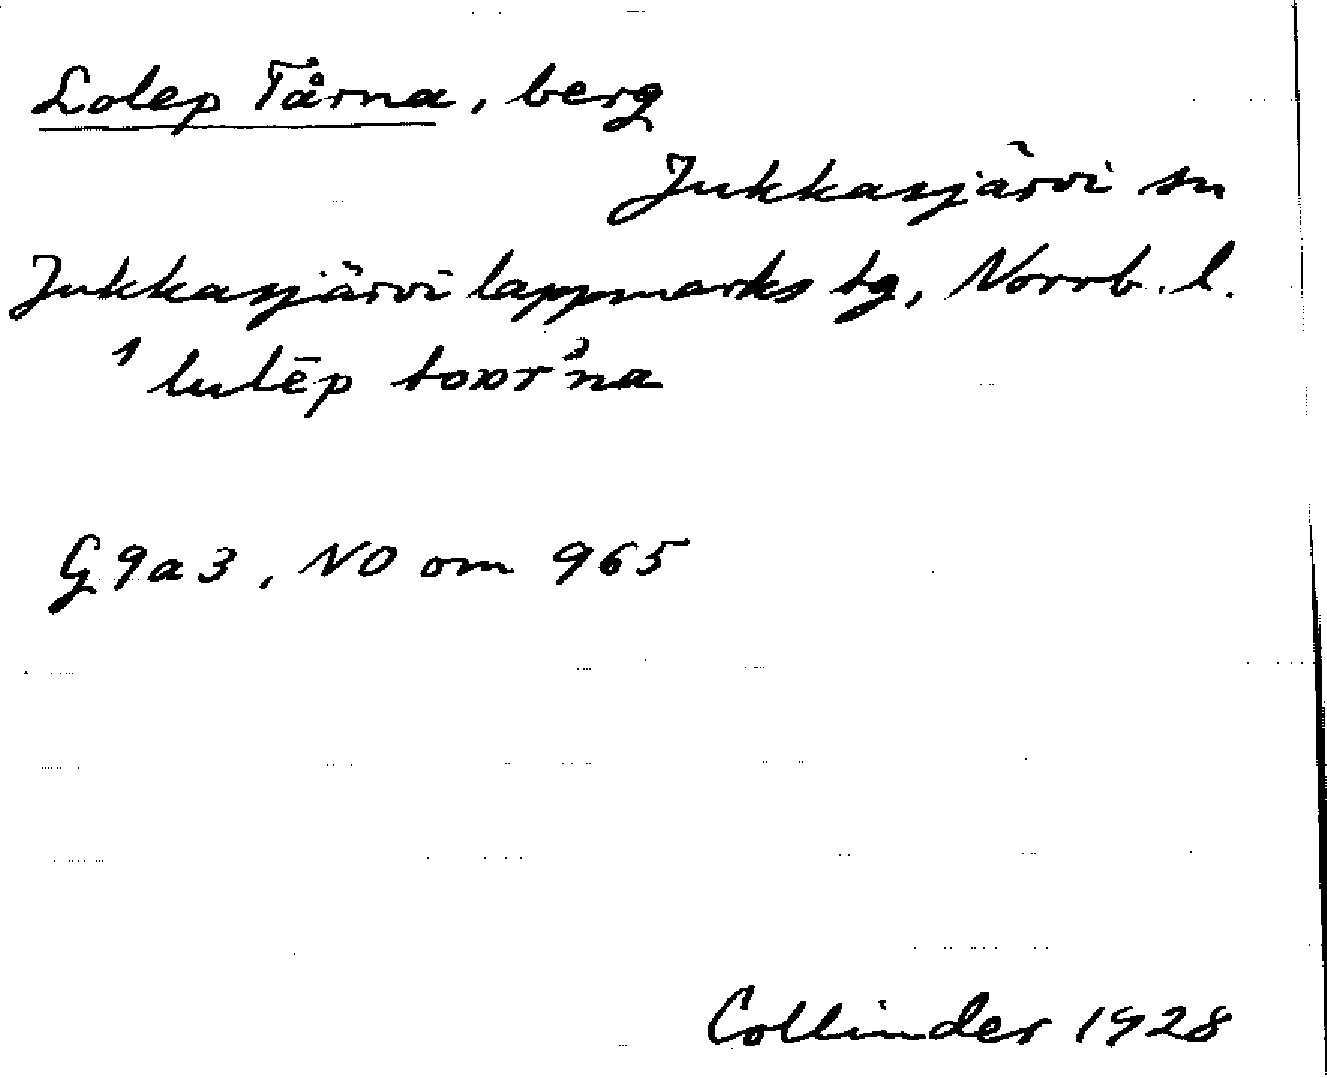 Lolep Tårna, berg
Jukkasjärvi sn
Jukkasjärvi lappmarks tg, Norrb. l.
lulēp
G 9a3, NO om 965
Collinder 1928